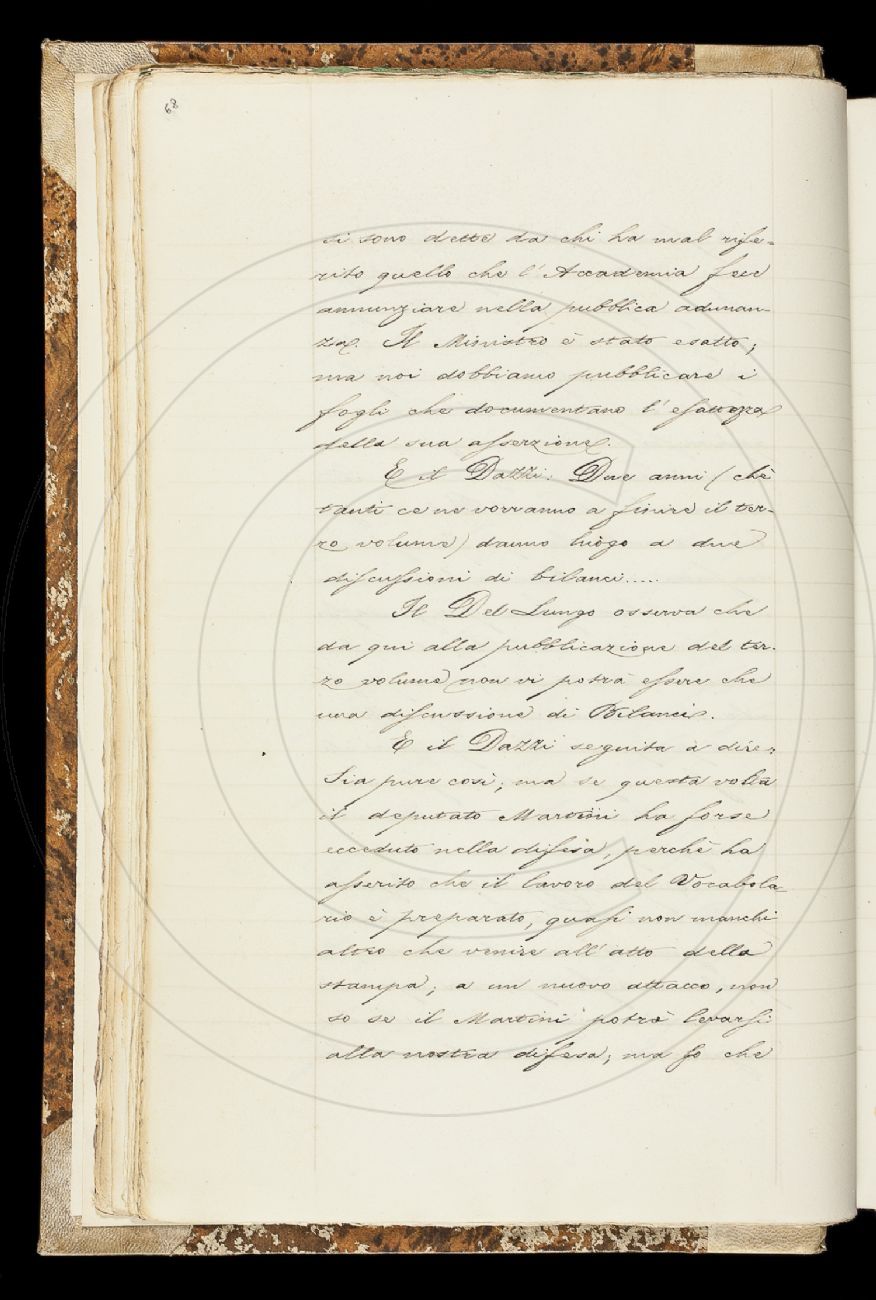 68
si sono dette da chi ha mal rife-
rito quello che l'Accademia fece
annunziare nella pubblica adunan-
za. Il Ministro è stato esatto;
ma noi dobbiamo pubblicare i
fogli che documentano l'esattezza
della sua asserzione.
E il Dazzi: Due anni (chè
tanti ce ne vorranno a finire il ter-
zo volume) danno luogo a due
discussioni di bilanci.....
Il Del Lungo osserva che
da qui alla pubblicazione del ter-
zo volume non vi potrà essere che
una discussione di Bilanci.
E il Dazzi seguita a dire:
Sia pure così; ma se questa volta
il deputato Martini ha forse
ecceduto nella difesa, perchè ha
asserito che il lavoro del Vocabola-
rio è preparato, quasi non manchi
altro che venire all'atto della
stampa; a un nuovo attacco, non
so se il Martini potrà levarsi
alla nostra difesa; ma so che